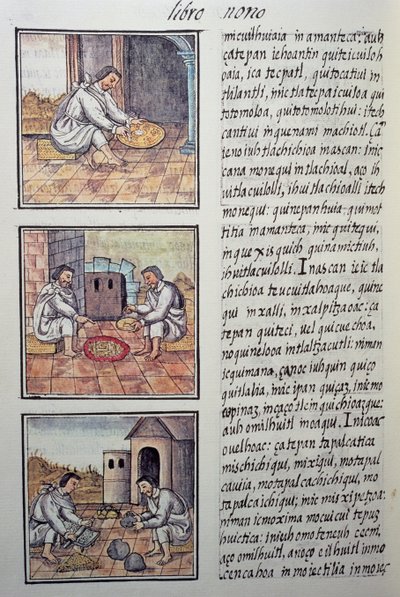 libro nono
micuilhuiaia in amanteca, auh
çatepan iehoantin quiteicuiloh
oaia, ica tecpatl, quitocativi in
tlilantli, inic tlatepaicuiloa qui
totomoloa, quitotomolotihui: itech
cantivi in quenami machiotl. Ça
ie no iuh tlachichioa in ascan: inic
cana monequi in tlachioal, aço ih
uitlacuilolli, ihuitlachioalli itech
monequi: quinepanhuia: quimot
titia in amanteca, inic quitequi,
in quexisquich quinamictiuh,
ihuitlacuilolli. In ascan ic ie tla
chichioa teucuitlahoaque, quin
qui in xalli, in xalpitzaoac: ça
tepan quiteci, vel quicuechoa,
no quinelooa in tlaltzacutli: niman
ic quimana, çan oc iuhquin quiço
quitlalia, inic ipan quiçaz, inic mo
copinaz, in çaço tlein quichioazque:
auh omilhuitl in oaqui. In icoac
ovelhoac: çatepan tapalcatica
mischichiqui, mixiqui, motapal
cavuia, motapalcachichiqui, mo
tapalcaichiqui; inic mis xipetzoa:
niman ic moxima mocuicui tepuz
huictica: in iuh omoteneuh cecmi,
aço omilhuitl, anoço e ilhuitl in mo
cencahoa in mojectilia in mojec